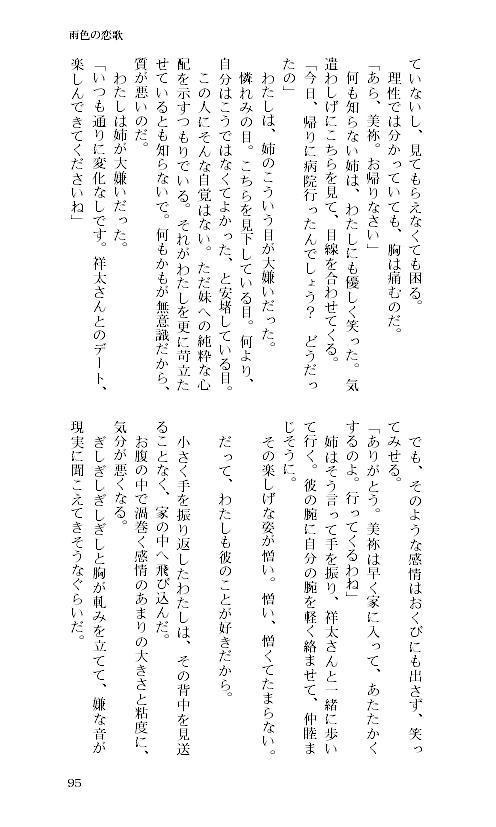 雨色の恋歌
ていないし、見てもらえなくても困る。
理性では分かっていても、胸は痛むのだ。
「あら、美祢。お帰りなさい」
何も知らない姉は、わたしにも優しく笑った。気
遣わしげにこちらを見て、目線を合わせてくる。
「今日、帰りに病院行ったんでしょう？　どうだっ
たの」
わたしは、姉のこういう目が大嫌いだった。
憐れみの目。こちらを見下している目。何より、
自分はこうではなくてよかった、と安堵している目。
この人にそんな自覚はない。ただ妹への純粋な心
配を示すつもりでいる。それがわたしを更に苛立た
せているとも知らないで。何もかもが無意識だから、
質が悪いのだ。
わたしは姉が大嫌いだった。
「いつも通りに変化なしです。祥太さんとのデート、
楽しんできてくださいね」
でも、そのような感情はおくびにも出さず、笑っ
てみせる。
「ありがとう。美祢は早く家に入って、あたたかく
するのよ。行ってくるわね」
姉はそう言って手を振り、祥太さんと一緒に歩い
て行く。彼の腕に自分の腕を軽く絡ませて、仲睦ま
じそうに。
その楽しげな姿が憎い。憎い、憎くてたまらない。
だって、わたしも彼のことが好きだから。
小さく手を振り返したわたしは、その背中を見送
ることなく、家の中へ飛び込んだ。
お腹の中で渦巻く感情のあまりの大きさと粘度に、
気分が悪くなる。
ぎしぎしぎしぎしと胸が軋みを立てて、嫌な音が
現実に聞こえてきそうなぐらいだ。
95